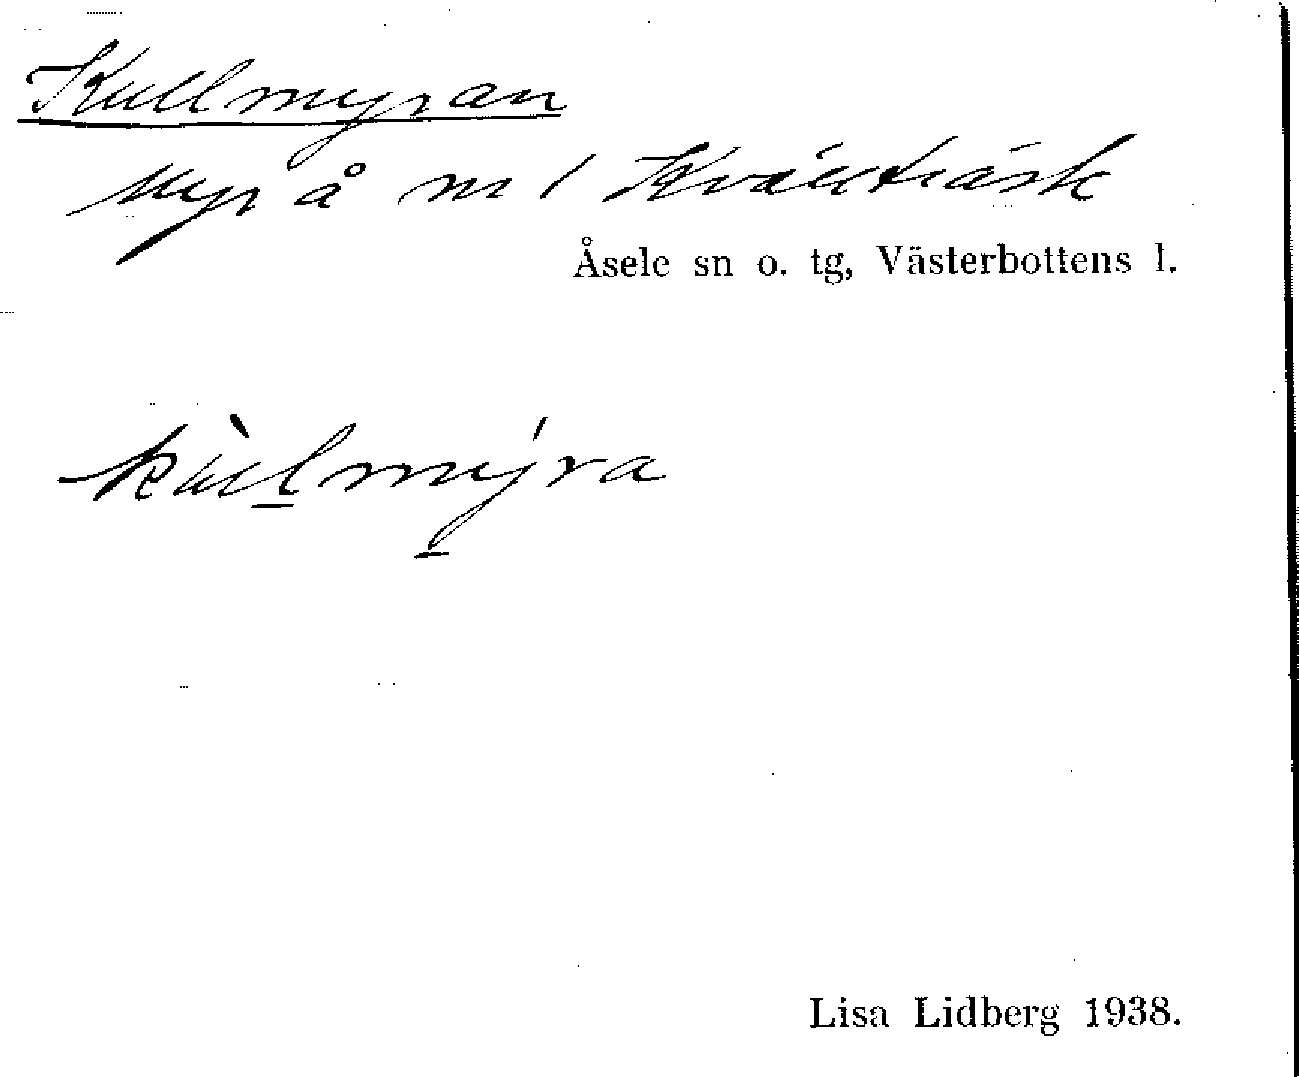 Kullmyran
Myr å nr 1 Kvällträsk
Åsele sn o. tg, Västerbottens l.
kùllmýra
Lisa Lidberg 1938.